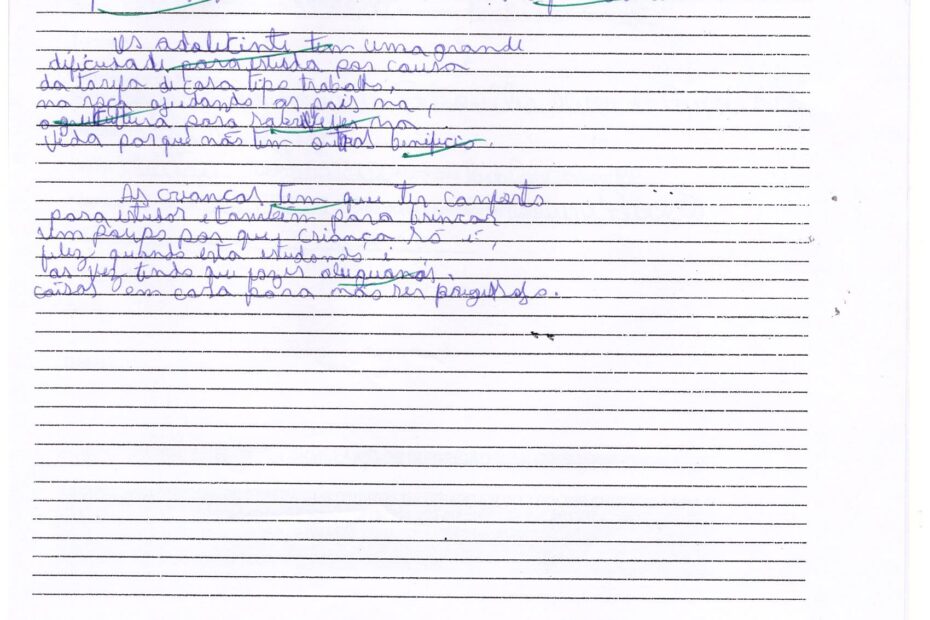 Os adolecente tem uma grande
dificudade para estuda por causa
da tarefa di casa tipo trabalho,
na roça ajudando os pais na,
agricultura para sobreviver na
vida porque não tem outros beneficio.
As criancas tem que ter conforto
para estudar e também para brincar
sem poupo por que, criança só é,
feliz quando esta estudando e
as vez tendo que fazer
coisas em casa para não ser preguisoso.